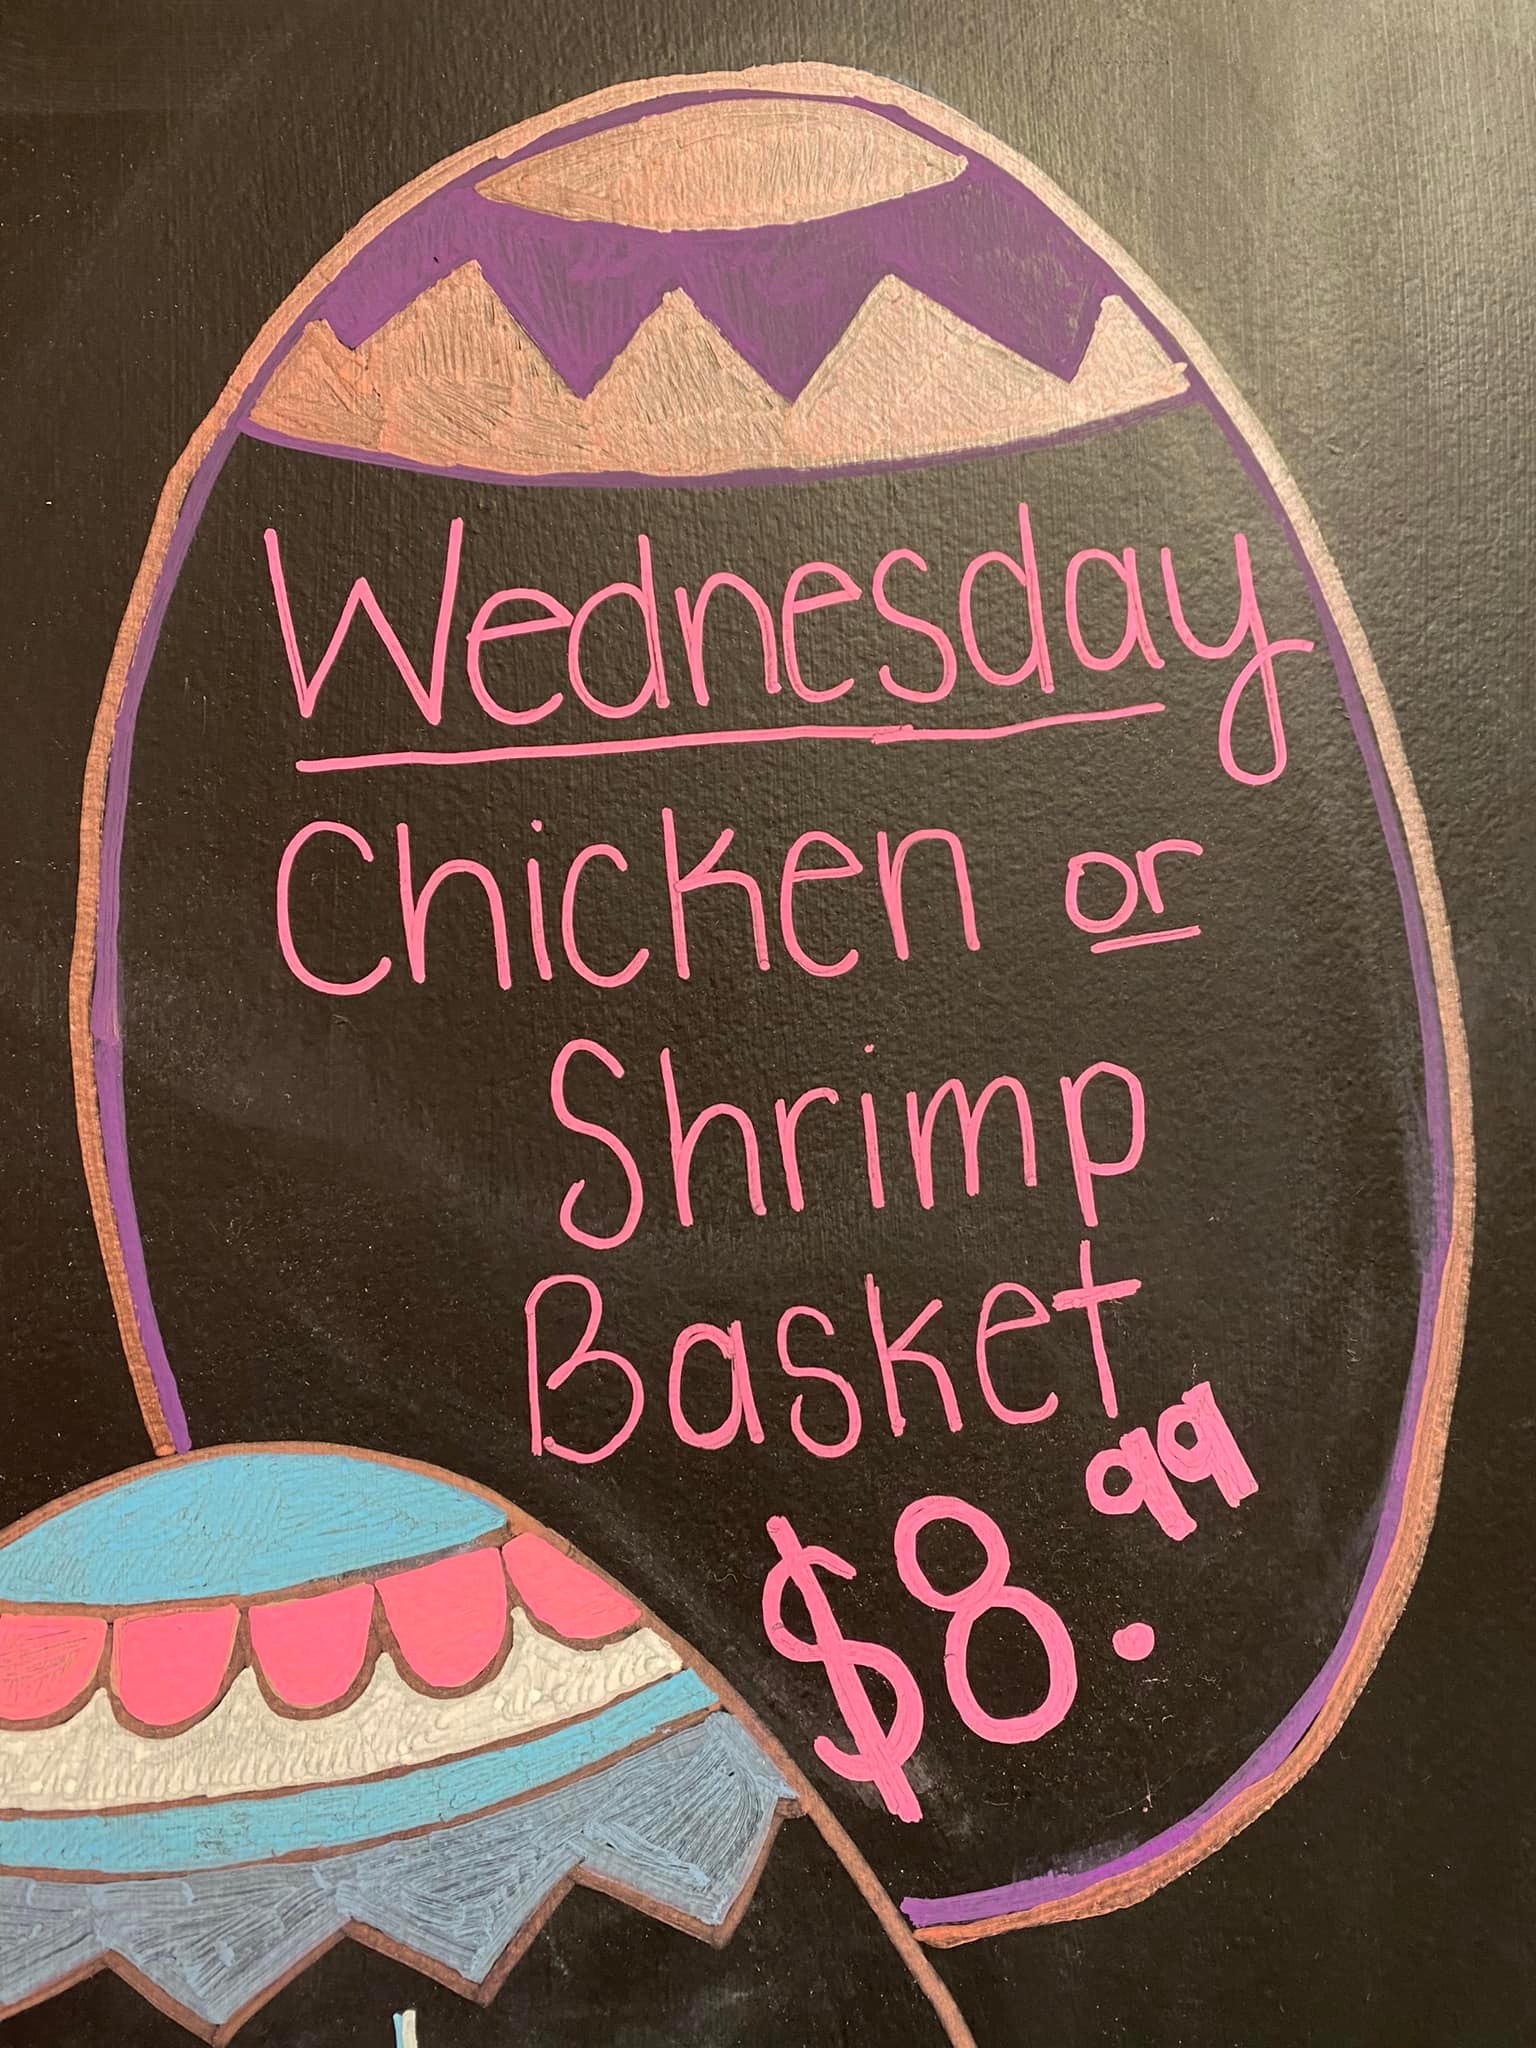 Wednesday
Chicken or
Shrimp
Basket
$8.99